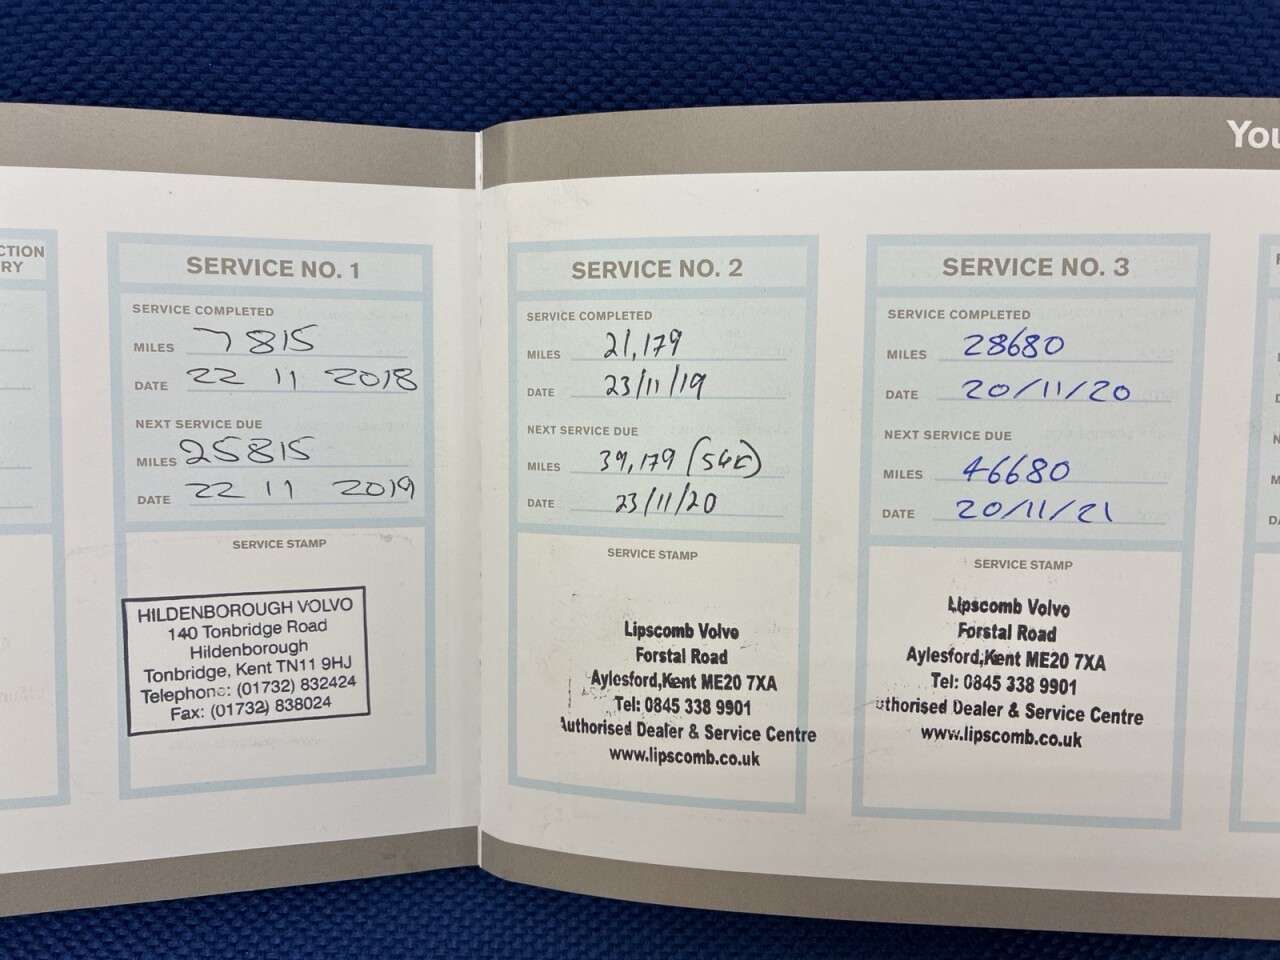 You
CTION
RY
SERVICE NO. 1
SERVICE COMPLETED
MILES 7815
DATE 22 11 2018
NEXT SERVICE DUE
MILES 25815
DATE 22 11 2019
SERVICE STAMP
HILDENBOROUGH VOLVO
140 Tonbridge Road
Hildenborough
Tonbridge, Kent TN11 9HJ
Telephone: (01732) 832424
Fax: (01732) 838024
SERVICE NO. 2
SERVICE COMPLETED
MILES 21,179
DATE 23/11/19
NEXT SERVICE DUE
MILES 39,179
DATE 23/11/20
SERVICE STAMP
Lipscomb Volvo
Forstal Road
Aylesford,Kent ME20 7XA
Tel: 0845 338 9901
Authorised Dealer & Service Centre
www.lipscomb.co.uk
SERVICE NO. 3
SERVICE COMPLETED
MILES 28680
DATE 20/11/20
NEXT SERVICE DUE
MILES 46680
DATE 20/11/21
SERVICE STAMP
Lipscomb Volvo
Forstal Road
Aylesford,Kent ME20 7XA
Tel: 0845 338 9901
uthorised Dealer & Service Centre
www.lipscomb.co.uk